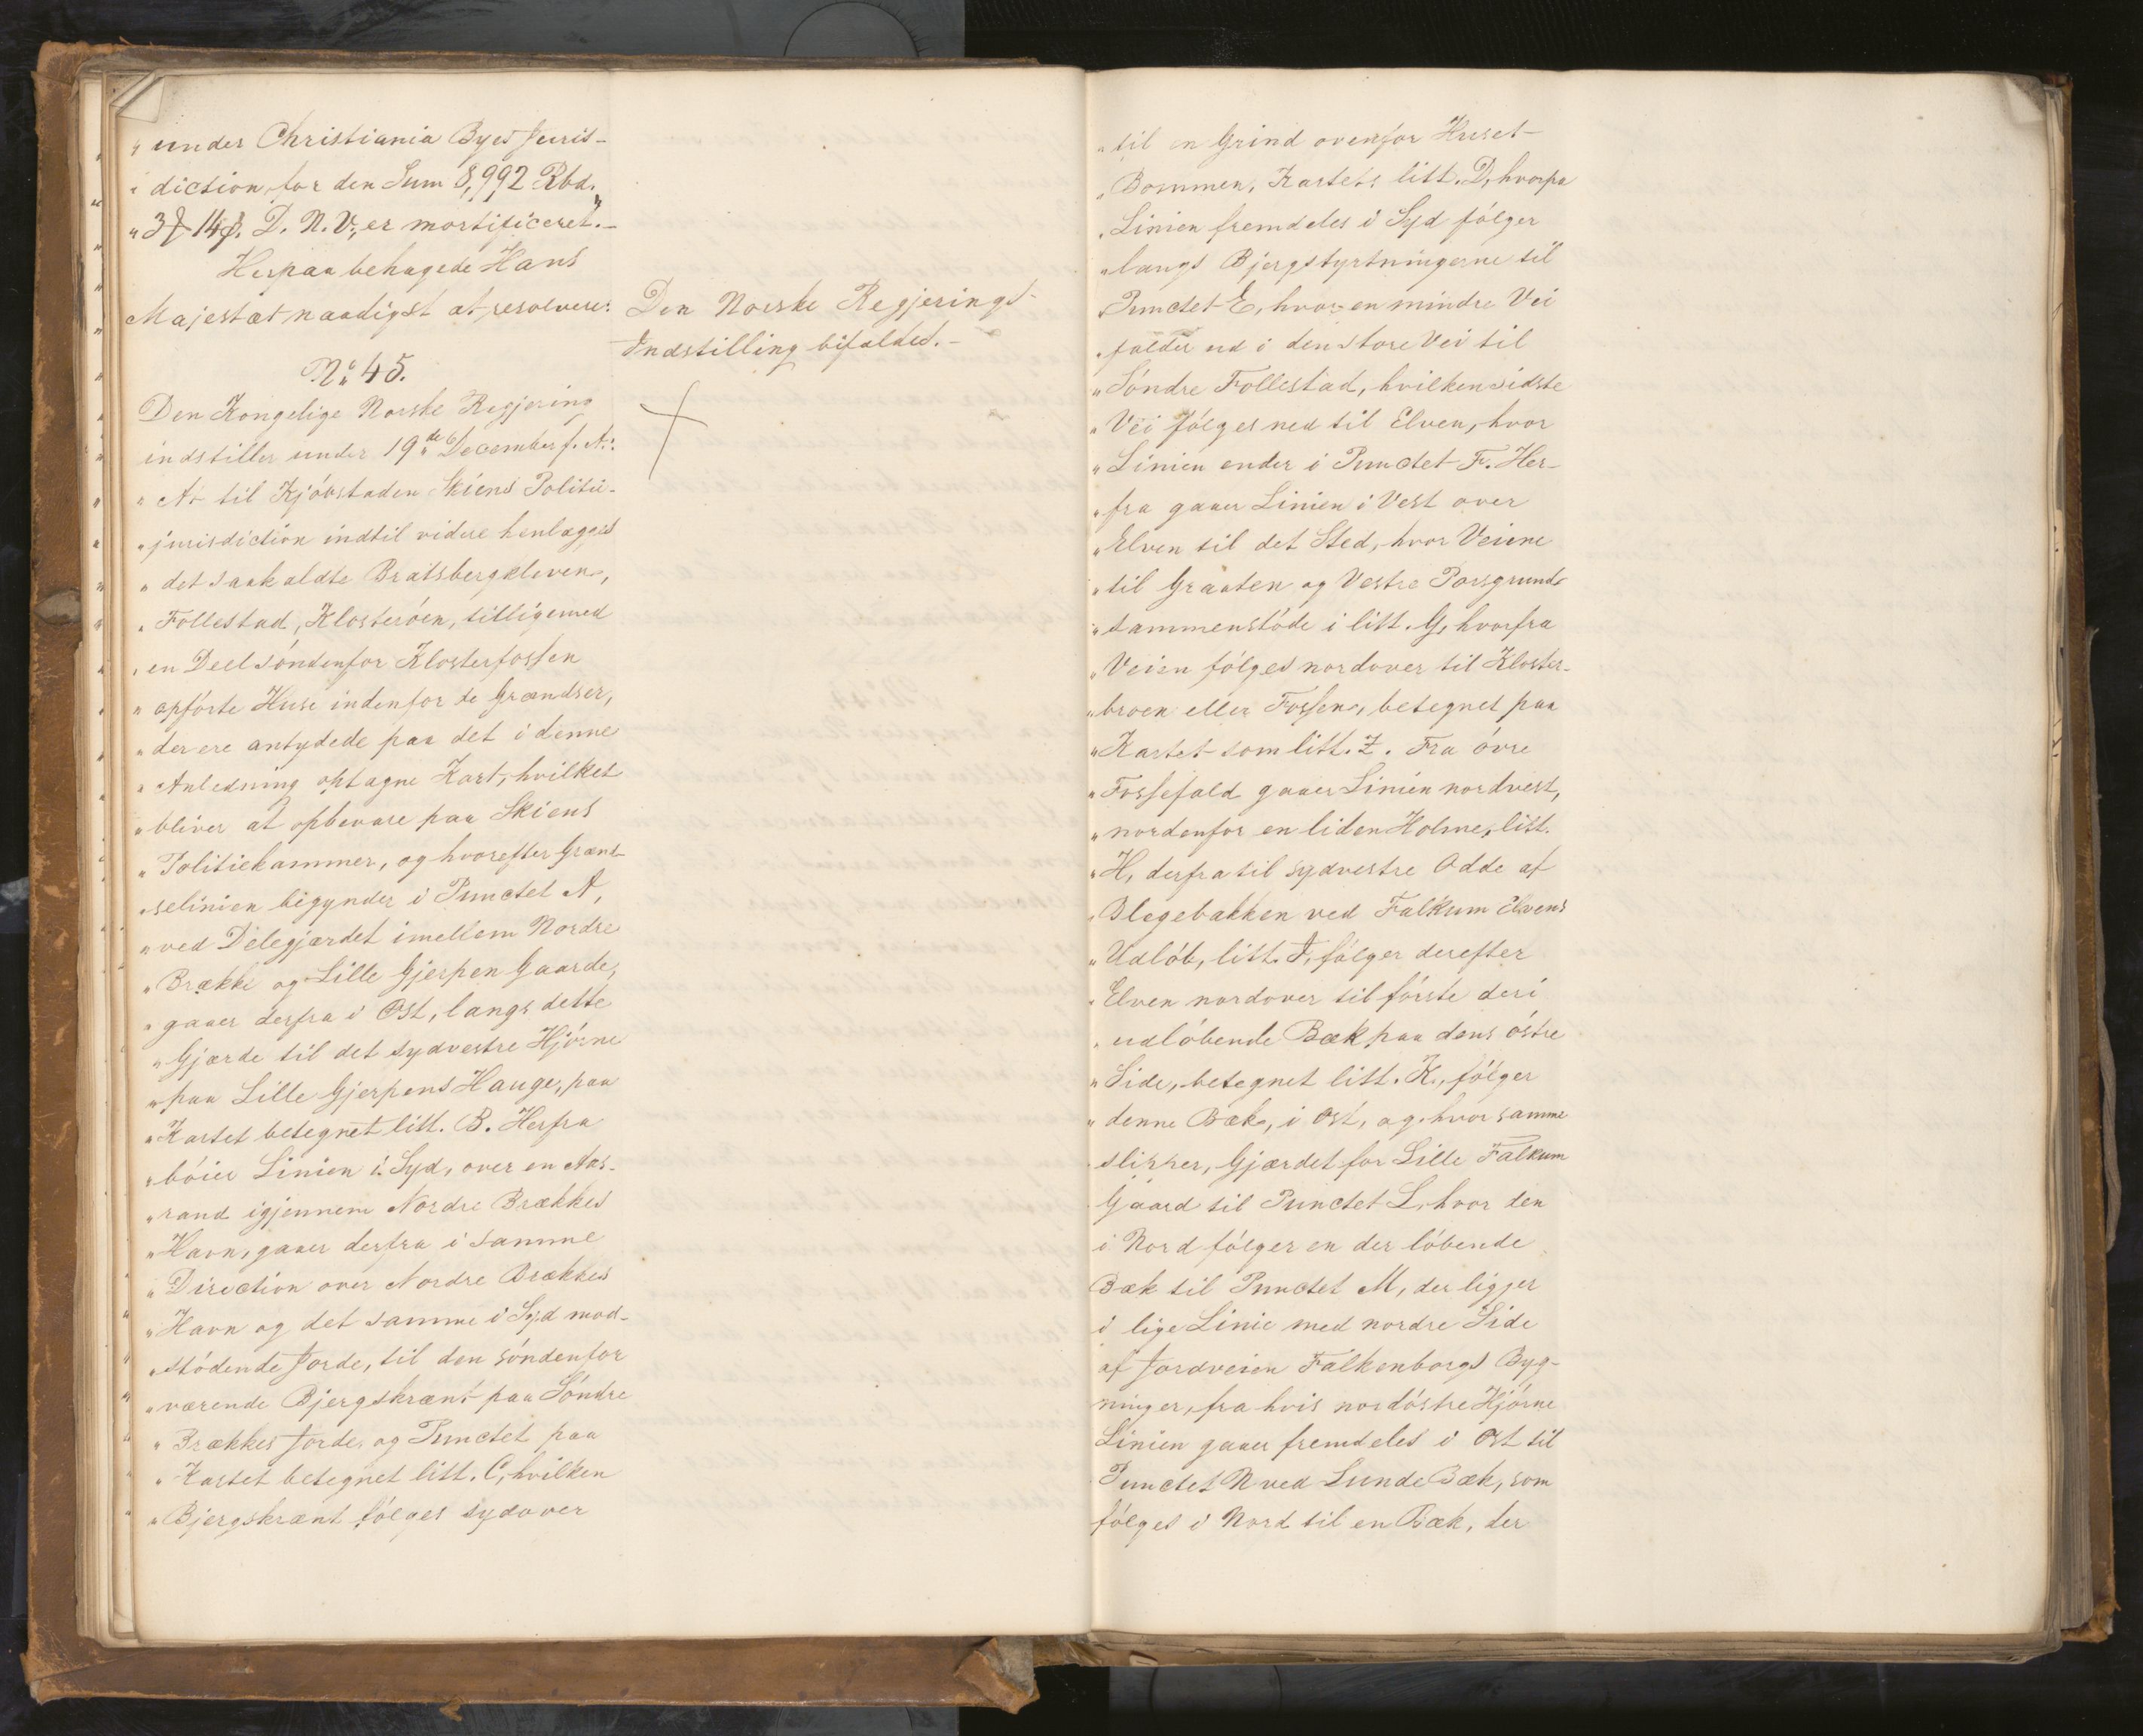 " under Christiania Byes Juris-
" diction, for den Sum 8,992 Rbd.
" 3 ₰ 14 ß. D. N. V., er mortificeret". -
Herpaa behagede Hans
Majestæt naadigst at resolvere:
Den Norske Regjerings-
Indstilling bifaldes. -
No. 45.
Den Kongelige Norske Regjering
indstiller under 19de December f. A.:
" At til Kjöbstaden Skiens Politie-
" jurisdiction indtil videre henlægges
" det saakaldte Bratsbergkleven,
" Follestad, Klosteröen, tilligemed
" en Deel söndenfor Klosterfossen
" opförte Huse indenfor de Grændser,
" der ere antydede paa det i denne
" Anledning optagne Kart, hvilket
" bliver at opbevare paa Skiens
" Politiekammer, og hvorefter Grænd-
" selinien begynder i Punctet A,
" ved Delegjærdet imellem Nordre
" Brække og Lille Gjerpen Gaarde,
" gaaer derfra i Ost, langs dette
" Gjærde til det sydvestre Hjörne
" paa Lille Gjerpens Hauge, paa
" Kartet betegnet litt. B. Herfra
" böier Linien i Syd, over en Aas-
" rand igjennem Nordre Brækkes
" Havn, gaaer derfra i samme
" Direction over Nordre Brækkes
" Havn og det samme i Syd mod-
" stödende Jorde, til den söndenfor
" værende Bjergskrænt paa Söndre
" Brækkes Jorde, og Punctet paa
" Kartet betegnet litt. C, hvilken
" Bjergskrænt fölges sydover
" til en Grind ovenfor Huset
" Bommen, Kartets litt. D, hvorpaa
" Linien fremdeles i Syd fölger
" langs Bjergstyrtningerne til
" Punctet E, hvor en mindre Vei
" falder ud i den store Vei til
" Söndre Follestad, hvilken sidste
" Vei fölges ned til Elven, hvor
" Linien ender i Punctet F. Her-
" fra gaaer Linien i Vest over
" Elven til det Sted, hvor Veiene
" til Graaten og Vestre Porsgrund
" sammenstöde i litt. G, hvorfra
" Veien fölges nordover til Kloster-
" broen eller Fossen, betegnet paa
" Kartet som litt. Z. Fra övre
" Fossefald gaaer Linien nordvest,
" nordenfor en liden Holme, litt.
" H, derfra til sydvestre Odde af
" Blegebakken ved Falkum Elvens
" Udlöb, litt. I, fölger derefter
" Elven nordover til förste deri
" udlöbende Bæk paa dens östre
" Side, betegnet litt. K., fölger
" denne Bæk, i Ost, og hvor samme
slipper, Gjærdet for Lille Falkum
Gaard til Punctet L, hvor den
i Nord fölger en der löbende
Bæk til Punctet M, der ligger
i lige Linie med nordre Side
af Jordveien Falkenborgs Byg-
ninger, fra hvis nordöstre Hjörne
Linien gaaer fremdeles i Ost til
Punctet N ved Lunde Bæk, som
fölges i Nord til en Bæk, der